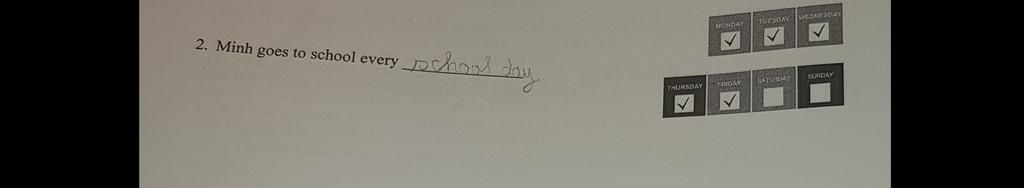 MONDAY TUESDAY WEDNESDAY
2. Minh goes to school every school day
THURSDAY FRIDAY SATURDAY SUNDAY